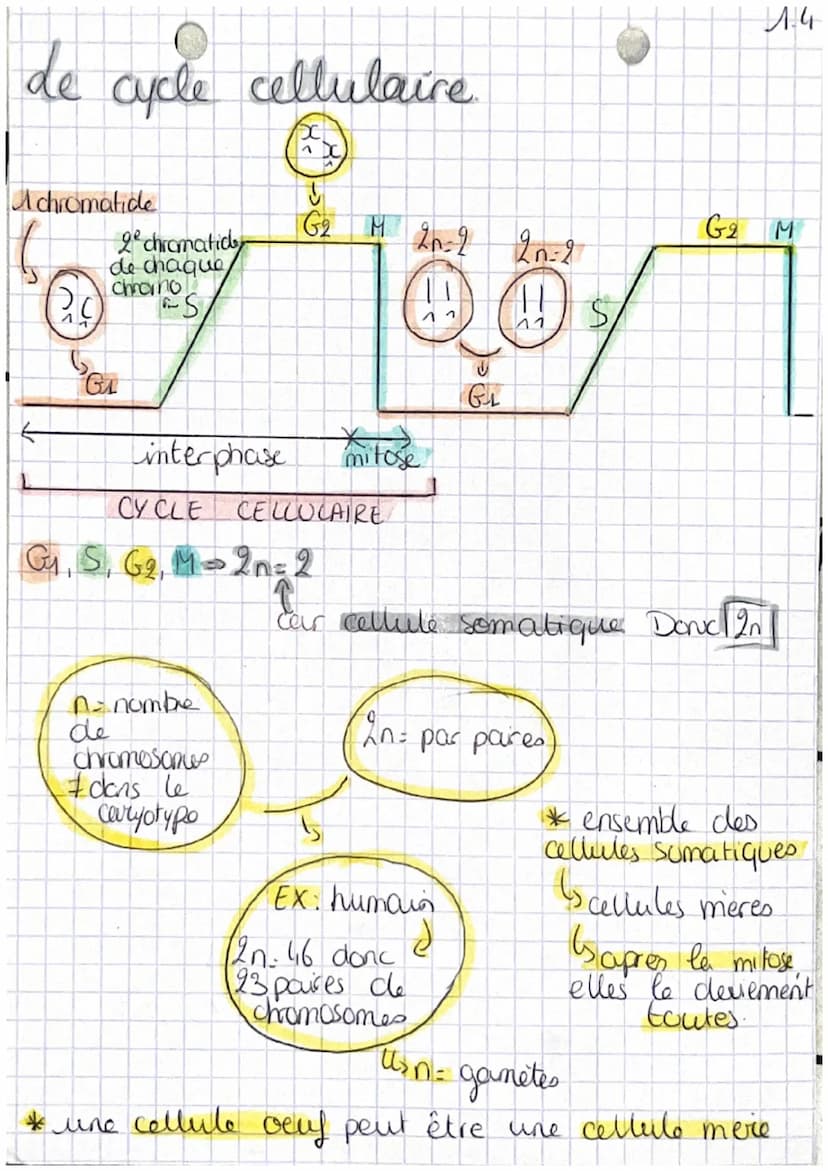 1.4
de cycle cellulaire.
1 chromatide
G2
M
2n=2
2n=2
G2
M
2e chromatide
de chaque
chromo
S
S
G1
G1
interphase
mitose
CYCLE CELLULAIRE
G1, S, G2, M ⇒ 2n=2
car cellule somatique Donc 2n
n= nombre
de
chromosomes
≠ dans le
caryotype
2n= par paires
* ensemble des
cellules somatiques
↳ cellules mères
↳ apres la mitose
elles le deviennent
toutes.
EX: humain
2n=46 donc
23 paires de
chromosomes
↳ n= gamètes
* une cellule oeuf peut être une cellule mere